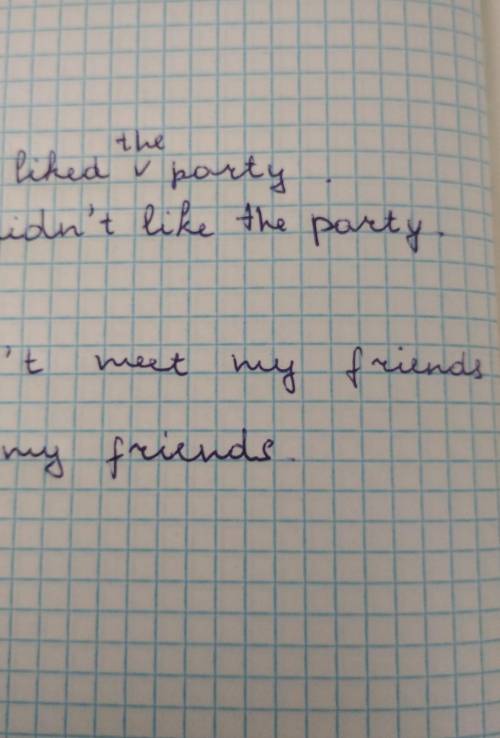 liked the party.
idn't like the party.
't meet my friends
my friends.